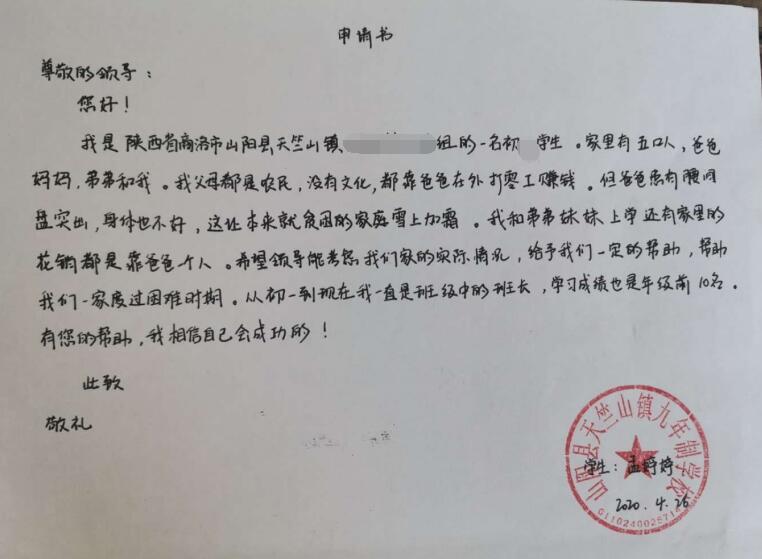 申请书
尊敬的领导：
您好！
我是陕西省商洛市山阳县天竺山镇 组的一名初 学生。家里有五口人，爸爸
妈妈，弟弟和我。我父母都是农民，没有文化，都靠爸爸在外打零工赚钱。但爸爸患有腰间
盘突出，身体也不好，这让本来就贫困的家庭雪上加霜。我和弟弟妹妹上学还有家里的
花销都是靠爸爸个人。希望领导能考虑我们家的实际情况，给予我们一定的帮助，帮助
我们一家度过困难时期。从初一到现在我一直是班级中的班长，学习成绩也是年级前10名。
有您的帮助，我相信自己会成功的！
此致
敬礼
山阳县天竺山镇九年制学校
学生：孟婷婷
2020.4.26